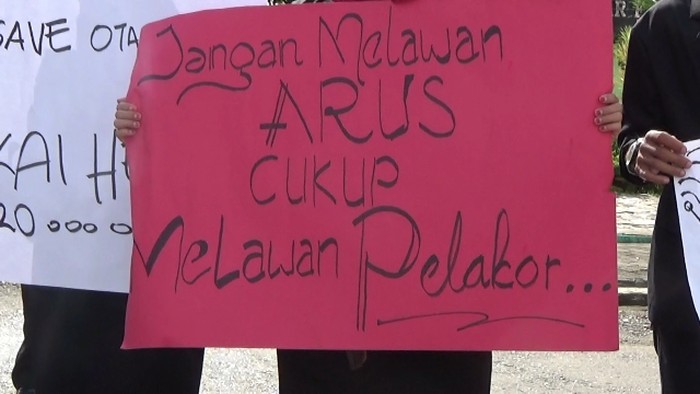 SAVE OTA
KAI H
20 ooo o
Jangan Melawan
ARUS
CUKUP
Melawan Pelakor...